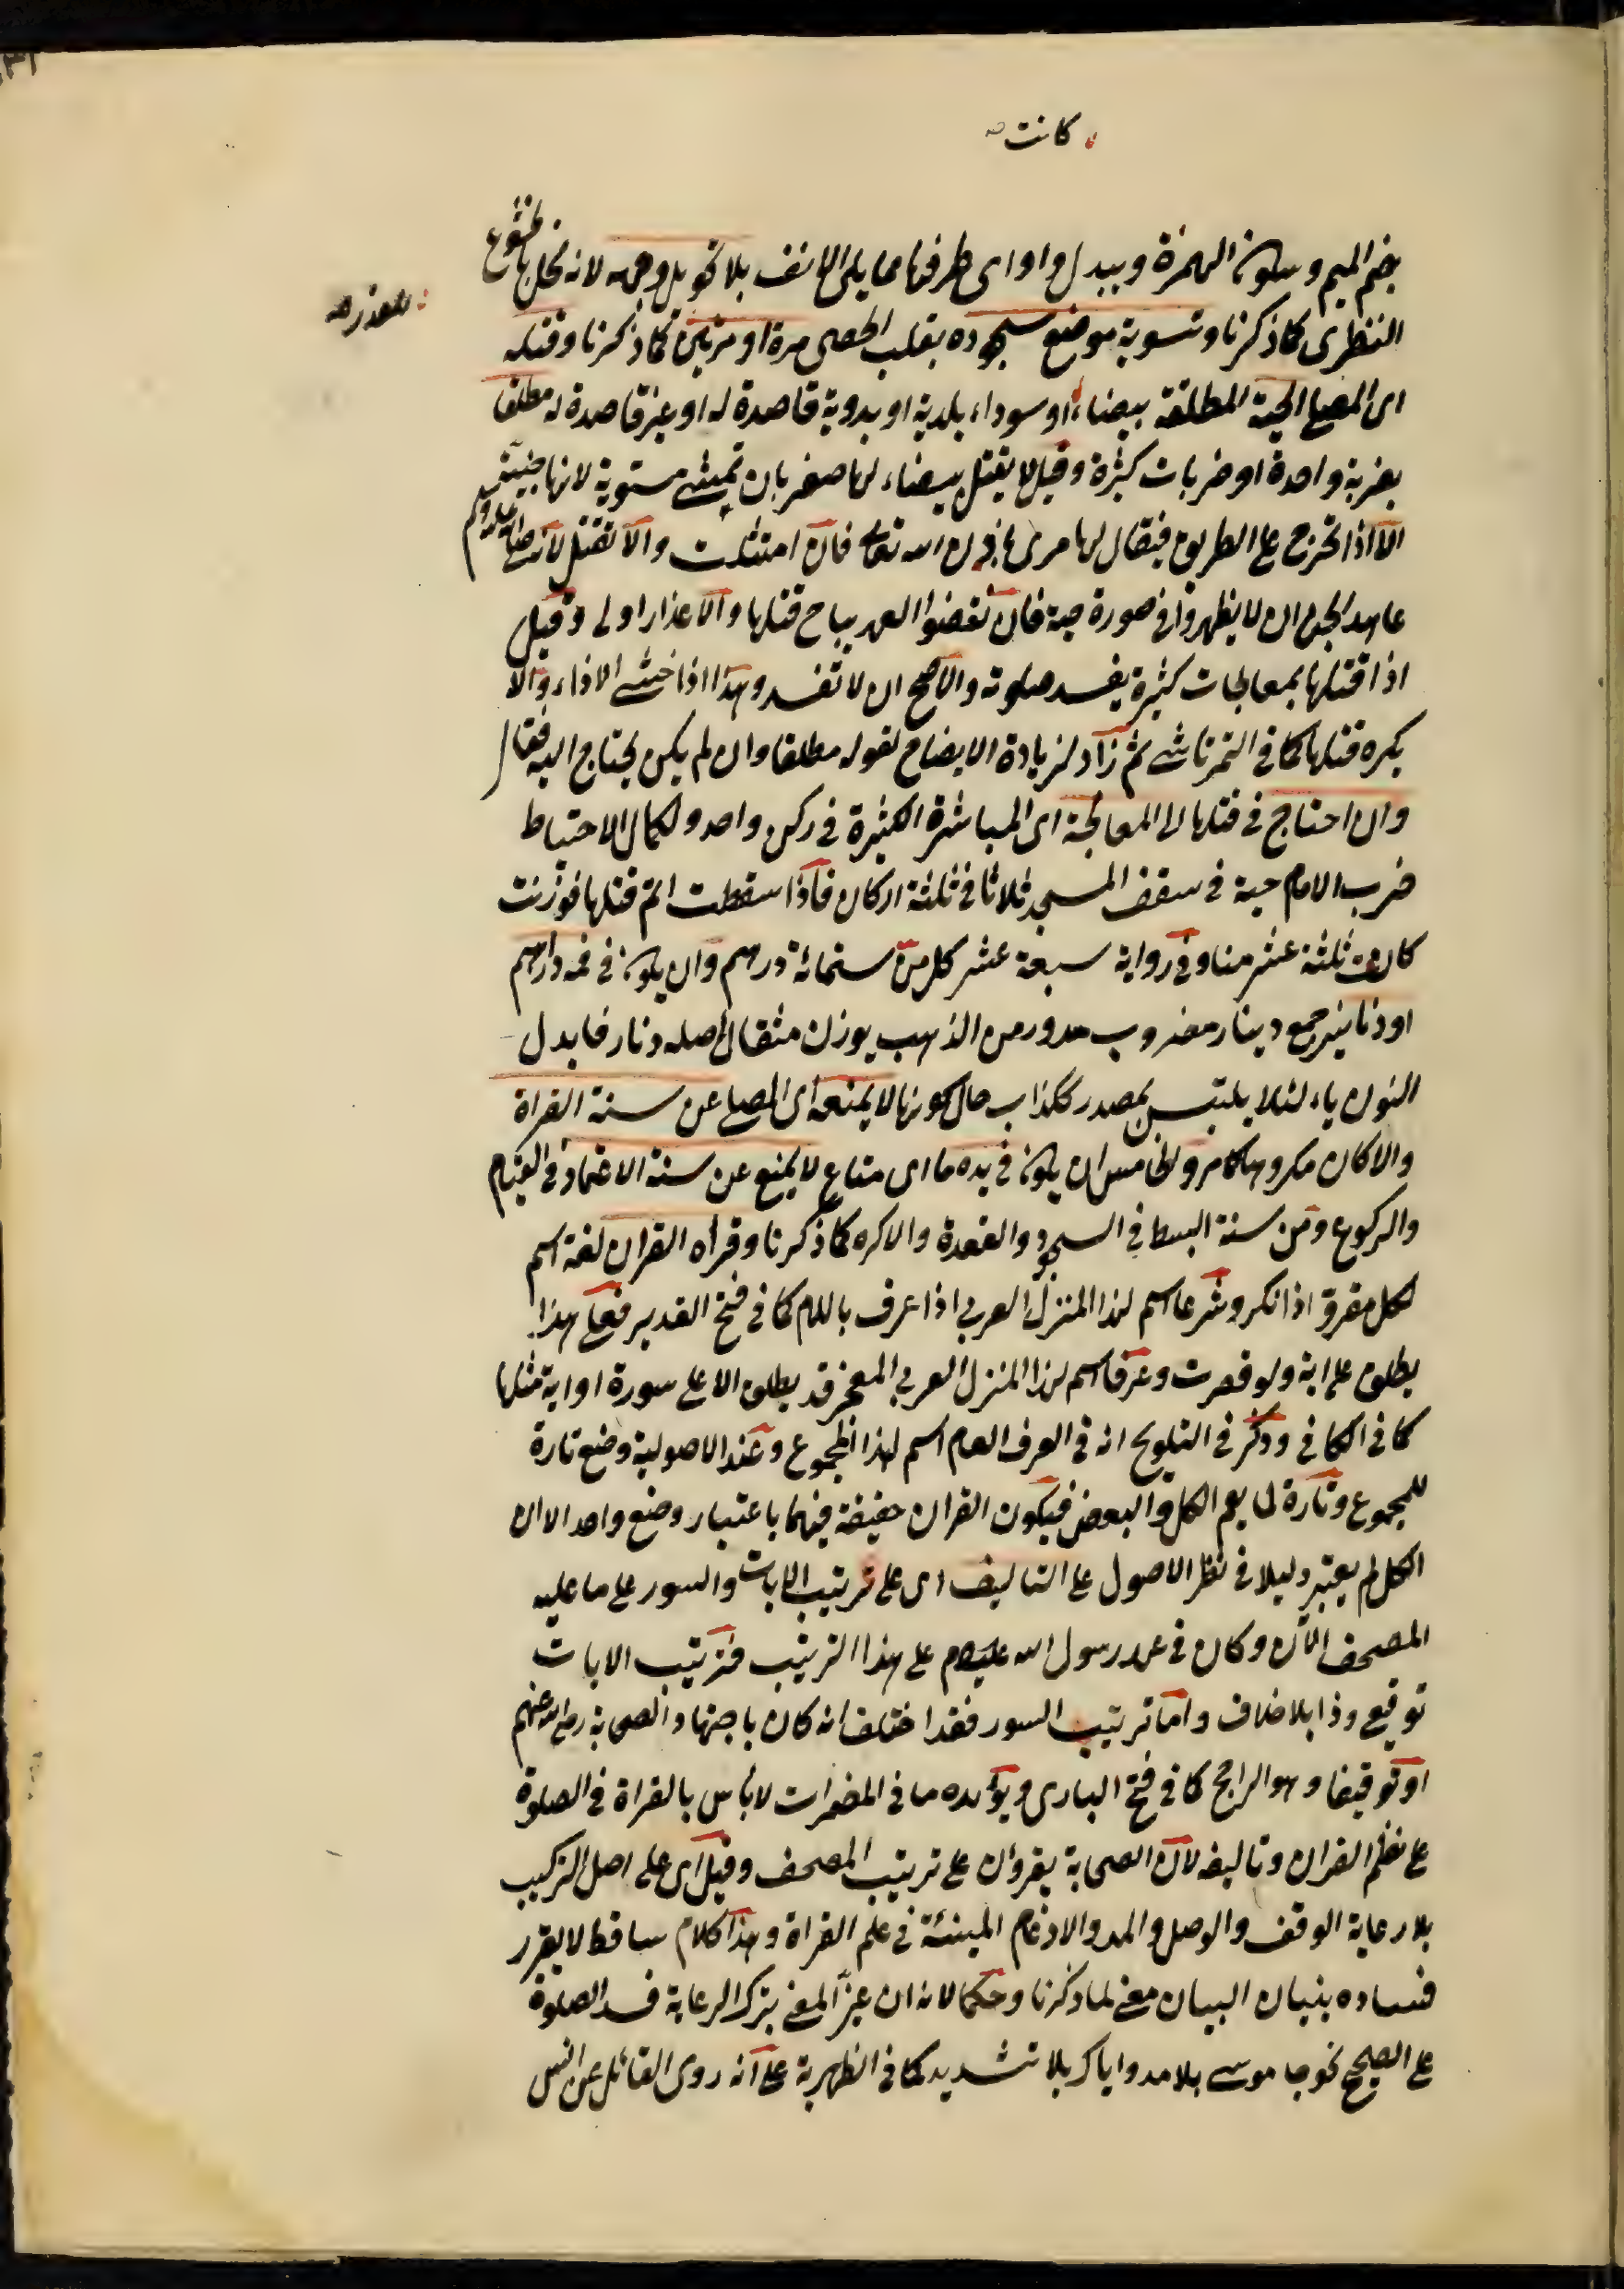 كانت
بضم الميم وسكون الهمزة ويبدل واوا اى طرفها مما يلى الانف بلا تحويل وجهه لانه يخل بالخشوع
للعذر
النظرى كما ذكرنا وتسوية موضع سجوده بقلب الحصى مرة او مرتين كما ذكرنا وقتله
اى المصلى الحية المطلقة بيضاء او سوداء بلدية او بدوية قاصدة له او غير قاصدة له مطلقا
بضربة واحدة او ضربات كثيرة وقيل لا يقتل بيضاء لها ضفيرتان تمشى مستوية لانها جنية
الا اذا تخرج على الطريق فيقال لها مرى باذن الله تعالى فان امتثلت والا تقتل لانه صلى الله عليه وسلم
عاهد الجن ان لا يظهروا فى صورة حية فان نقضوا العهد يباح قتلها والاعذار اولى وقيل
اذا قتلها بمعالجات كثيرة يفسد صلوته والاصح ان لا تفسد وهذا اذا خشى الاذاء والا
يكره قتلها كما فى التمرتاشى ثم زاد لزيادة الايضاح لقوله مطلقا وان لم يكن يحتاج اليه فقال
وان احتاج فى قتلها الى المعالجة اى المباشرة الكثيرة فى ركن واحد ولكمال الاحتياط
ضرب الامام حية فى سقف المسجد ثلاثا فى ثلثة اركان فاذا سقطت اتم قتلها فوزنت
كان ثلثة عشر منا وفى رواية سبعة عشر كل من ستمائة درهم وان يكون فى فمه دراهم
او دنانير جمع دينار مضروب مدور من الذهب يوزن مثقال اصله دنار فابدل
النون ياء لئلا يلتبس بمصدر ككذاب حال كونها لا يمنعه اى المصلى عن سنة القراة
والا كان مكروها كما مر والخامس ان يكون فى يده ما اى متاع لا يمنع عن سنة الاعتماد فى القيام
والركوع ومن سنة البسط فى السجود والقعدة والا كره كما ذكرنا وقراه القران لغة اسم
لكل مقرو اذا نكر وشرعا اسم لهذا المنزل العربى اذا عرف باللام كما فى فتح القدير فعلى هذا
يطلق على اية ولو قصرت وعرفا اسم لهذا المنزل العربى المعجز قد يطلق الا على سورة او اية مثلها
كما فى الكافى وذكر فى التلويح انه فى العرف العام اسم لهذا المجموع وعند الاصولية وضع تارة
للمجموع وتارة لما يعم الكل والبعض فيكون القران حقيقة فيهما باعتبار وضع واحد الا ان
الكل لم يعتبر دليلا فى نظر الاصول على التاليف اى على ترتيب الايات والسور على ما عليه
المصحف الان وكان فى عهد رسول الله عليه السلام على هذا الترتيب فترتيب الايات
توقيعى وذا بلا خلاف واما ترتيب السور فقد اختلف انه كان باجتهاد الصحابة رضى الله عنهم
او توقيفا وهو الراجح كما فى فتح البارى ويؤيده ما فى المضمرات لا باس بالقراة فى الصلوة
على نظم القران وتاليفه لان الصحابة يقرؤن على ترتيب المصحف وقيل اى على اصل التركيب
بلا رعاية الوقف والوصل والمد والادغام المبينة فى علم القراة وهذا كلام ساقط لا يقرر
فساده بنيان البيان معنى لما ذكرنا وحكما لانه ان غير المعنى بترك الرعاية فسد الصلوة
على الصحيح نحو جا موسى بلا مد واياك بلا تشديد كما فى الظهرية على انه روى القائل عن انس